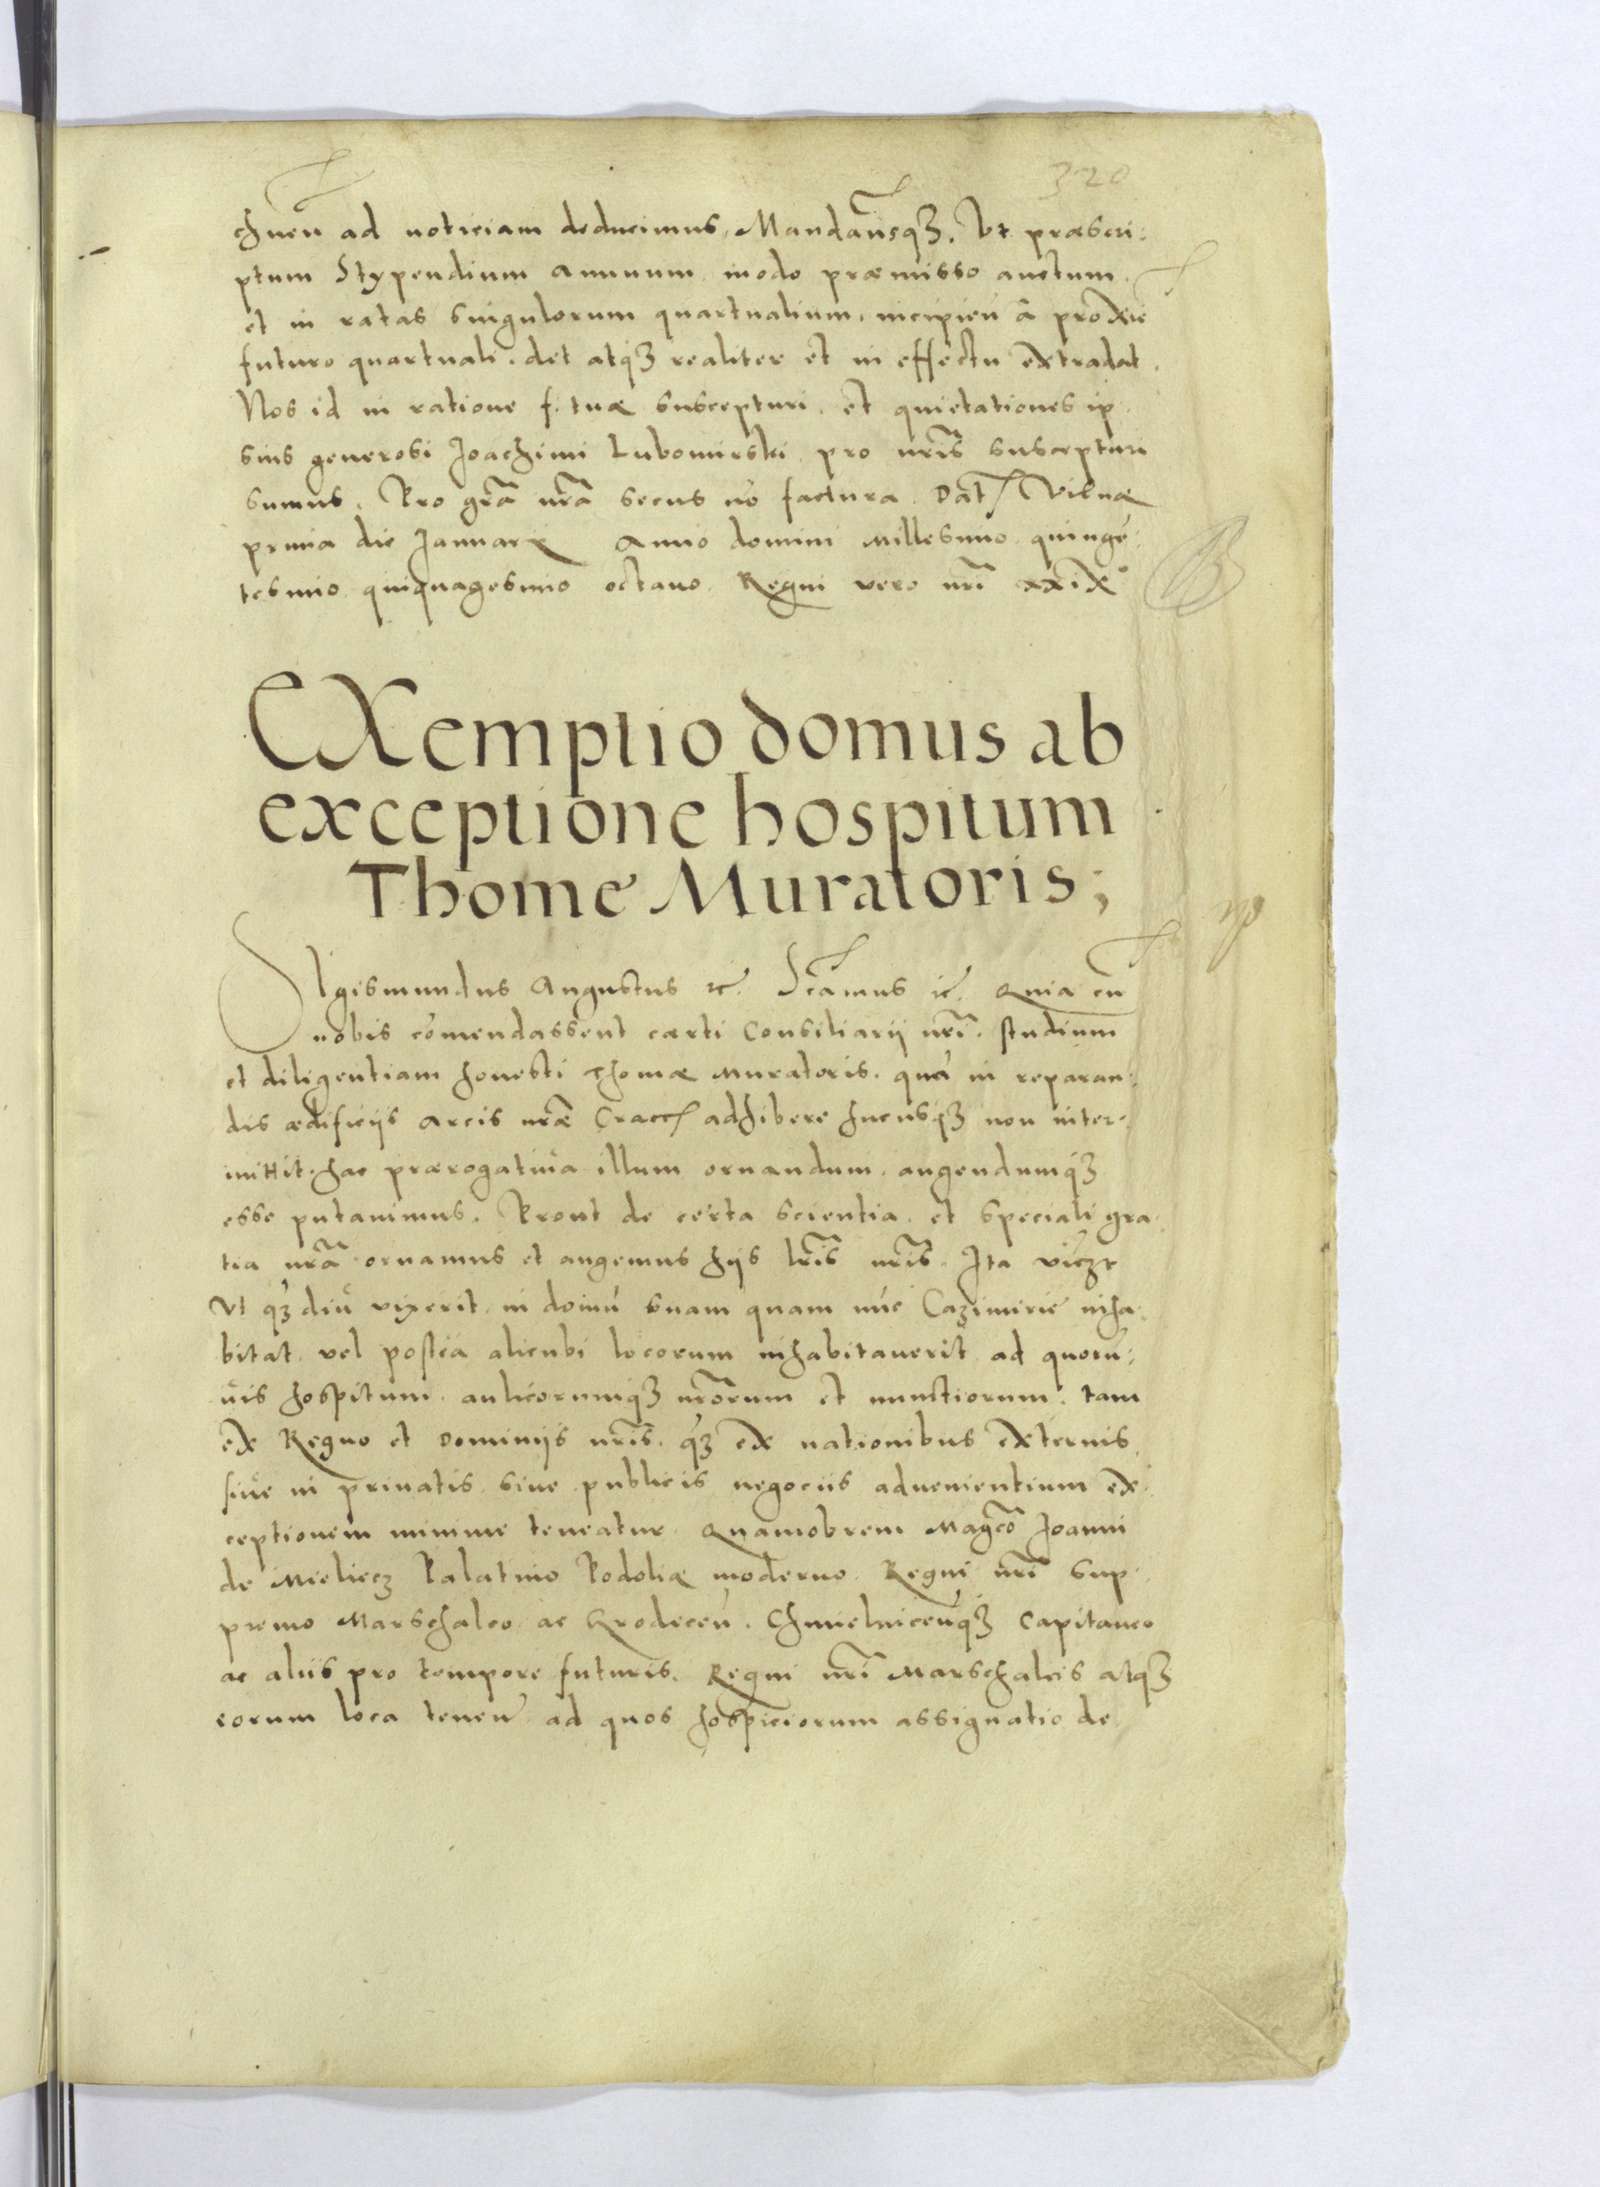 320
chnen ad noticiam deducimus, Mandan̄sqꝫ. Vt præscri:
ptum Stypendium Annuum modo præmisso auctum
et in ratas singulorum quartualium, incipień a proxīe
futuro quartuali. det atqꝫ realiter et in effectu extradat.
Nos id in ratione f. tuæ suscepturi. et quietationes ip
sius generosi Joachimi Lubomirski pro nr̄is suscepturi
sumus. Pro gr̄a nr̄a secus nō factura. Dat Vilnæ
prima die Januarÿ Anno domini Millesimo quingē
tesimo quiquagesimo octauo. Regni vero nr̄i xxix°
EXemptio domus ab
exceptione hospitum
Thome Muratoris;
SIgismundus Augustus ꝛc̄. Sc̄amus ꝛc̄. Quia cū
nobis cōmendassent cærti Consiliarii nr̄i. studium
et diligentiam honesti Thomæ Muratoris. quā in reparan:
dis ædificijs Arcis nr̄æ Cracc̄ adhibere hucusqꝫ non inter:
mittit. hac prærogatiua illum ornandum. augendumqꝫ
esse putauimus. Prout de certa scientia. et speciali gra
tia nr̄a ornamus et augemus hijs lr̄is nr̄is. Ita vicꝫt
Vt qꝫ diu vixerit. in domū suam quam nūc Cazimirie inha
bitat. vel postea alicubi locorum inhabitauerit ad quorū:
uis hospitum. aulicorumqꝫ nr̄orum et nunctiorum. tam
ex Regno et Dominijs nr̄is. qꝫ ex nationibus externis
siue in priuatis siue publicis negociis aduenientium ex:
ceptionem minime teneatur. Quamobrem Magc̄o Joanni
de Mieliecz Palatino Podoliæ moderno. Regni nr̄i sup
premo Marschalco. ac Grodecen̄. Chmelnicen̄qꝫ Capitaneo
ac aliis pro tempore futuris. Regni nr̄i Marschalcis atqꝫ
eorum loca tenen̄ ad quos hospiciorum assignatio de